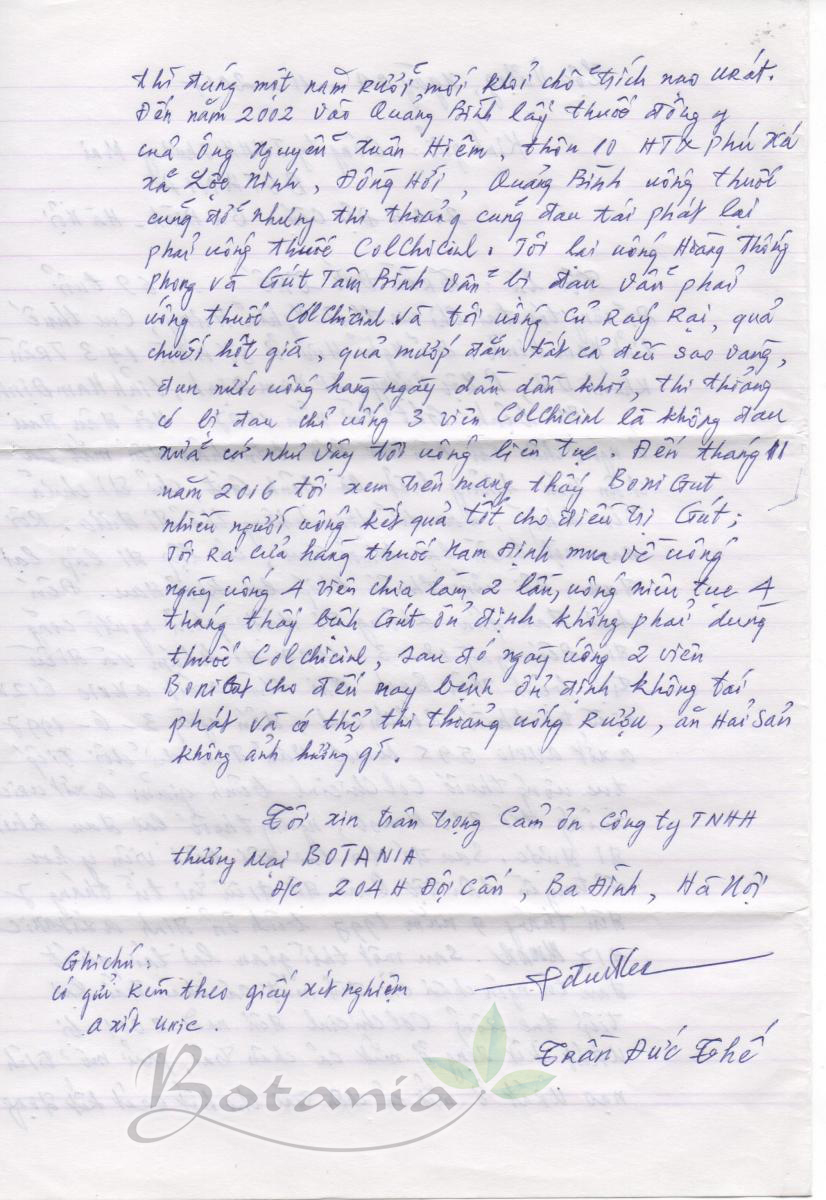 thì đúng một năm rưỡi mới khỏi chỗ trích nao urát.
Đến năm 2002 vào Quảng Bình lấy thuốc đông y
của ông Nguyễn Xuân Hiêm, thôn 10 HTX Phú Xá
xã Lộc Ninh, Đồng Hới, Quảng Bình uông thuốc
cung đỡ nhưng thi thoảng cung đau tái phát lại
phải uông thuốc ColChicinl. Tôi lại uông Hoàng Thống
Phong và Gút Tâm Bình vẫn bi đau vẫn phải
uống thuốc ColChicinl và tôi uống củ Ráy Rại, quả
chuối hột già, quả mướp đắn tất cả đều sao vang,
đun nước uông hang ngày dần dần khỏi, thi thoảng
có bi đau chỉ uông 3 viên ColChicinl là không đau
nữa cứ như vậy tôi uông liên tục. Đến thang 11
năm 2016 tôi xem trên mạng thấy BoniGut
nhiều người uông kết quả tốt cho điều trị Gút;
Tôi ra cửa hàng thuốc Nam Định mua về uông
ngay uông 4 viên chia lam 2 lần, uông niên tục 4
thang thấy bệnh Gút ổn định không phải dung
thuốc ColChicinl, sau đó ngay uống 2 viên
BoniGut cho đến nay bênh ổn định không tái
phát và có thể thi thoảng uống Rượu, ăn Hải Sản
không ảnh hưởng gì.
Tôi xin trân trọng Cảm ơn Công ty TNHH
thương Mại BOTANIA
Đ/C 204H Đội Cấn, Ba Đình, Hà Nội
Ghi chú:
có gửi kem theo giấy xét nghiệm
axít uric.
Trần Đức Thế
Botania